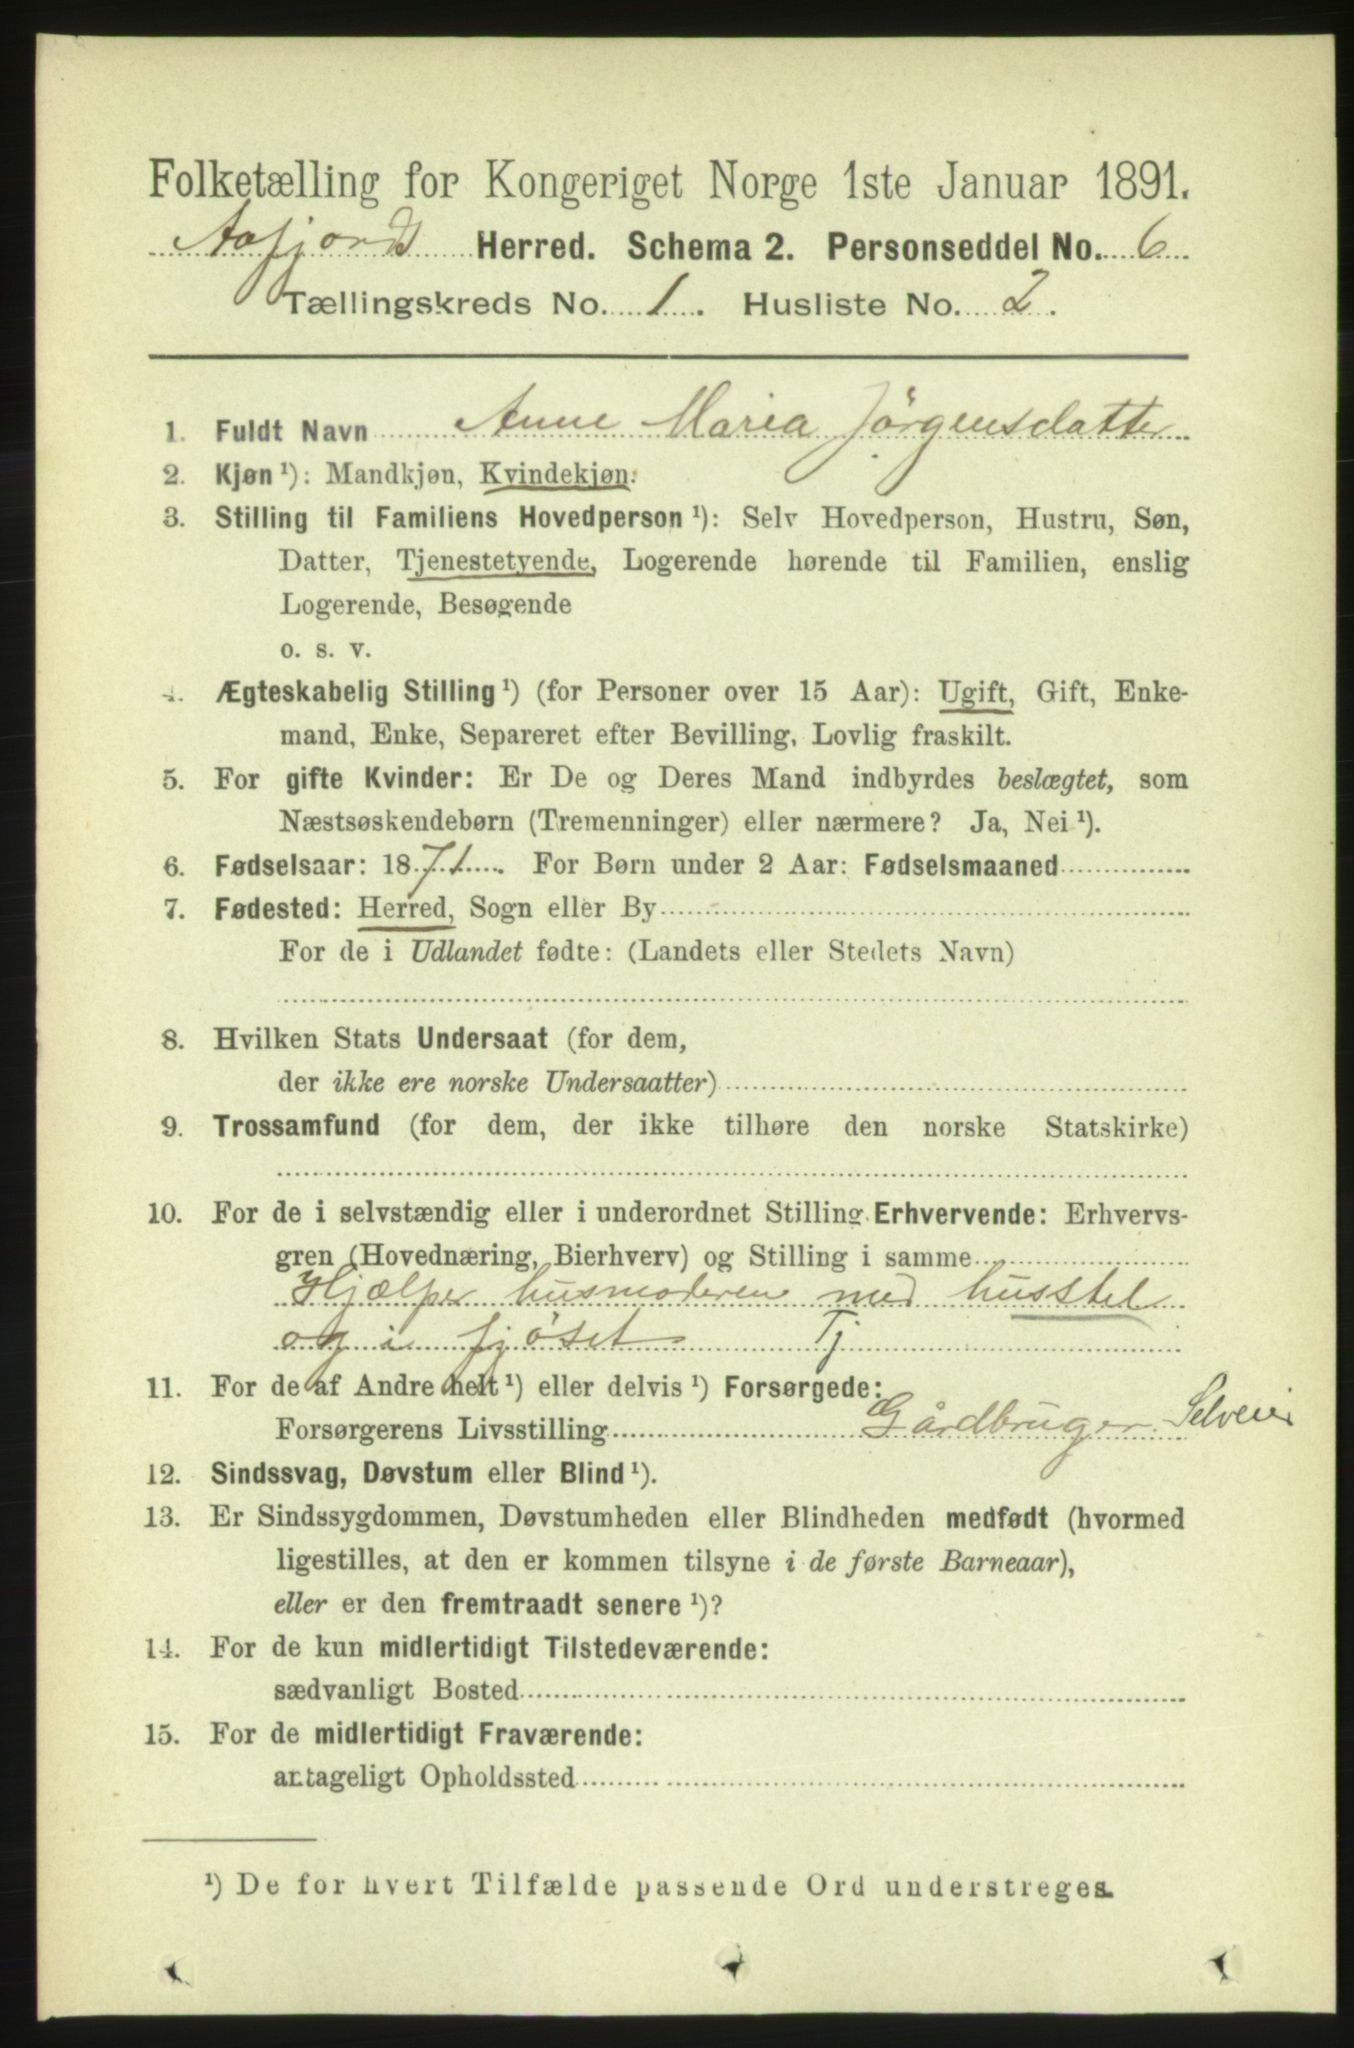 Folketælling for Kongeriget Norge 1ste Januar 1891.
Aafjords Herred. Schema 2. Personseddel No. 6
Tællingskreds No. 1. Husliste No. 2.
1. Fuldt Navn Anne Maria Jörgensdatter
2. Kjøn ¹): Mandkjøn, Kvindekjøn.
3. Stilling til Familiens Hovedperson ¹): Selv Hovedperson, Hustru, Søn,
Datter, Tjenestetyende, Logerende hørende til Familien, enslig
Logerende, Besøgende
o. s. v.
4. Ægteskabelig Stilling ¹) (for Personer over 15 Aar): Ugift, Gift, Enke-
mand, Enke, Separeret efter Bevilling, Lovlig fraskilt.
5. For gifte Kvinder: Er De og Deres Mand indbyrdes beslægtet, som
Næstsøskendebørn (Tremenninger) eller nærmere? Ja, Nei ¹).
6. Fødselsaar: 1871. For Børn under 2 Aar: Fødselsmaaned
7. Fødested: Herred, Sogn eller By
For de i Udlandet fødte: (Landets eller Stedets Navn)
8. Hvilken Stats Undersaat (for dem,
der ikke ere norske Undersaatter)
9. Trossamfund (for dem, der ikke tilhøre den norske Statskirke)
10. For de i selvstændig eller i underordnet Stilling Erhvervende: Erhvervs-
gren (Hovednæring, Bierhverv) og Stilling i samme
Hjælper husmoderen med husstel
og i fjöset Tj
11. For de af Andre helt ¹) eller delvis ¹) Forsørgede:
Forsørgerens Livsstilling Gårdbruger. Selveier
12. Sindssvag, Døvstum eller Blind ¹).
13. Er Sindssygdommen, Døvstumheden eller Blindheden medfødt (hvormed
ligestilles, at den er kommen tilsyne i de første Barneaar),
eller er den fremtraadt senere ¹)?
14. For de kun midlertidigt Tilstedeværende:
sædvanligt Bosted
15. For de midlertidigt Fraværende:
antageligt Opholdssted
¹) De for hvert Tilfælde passende Ord understreges.